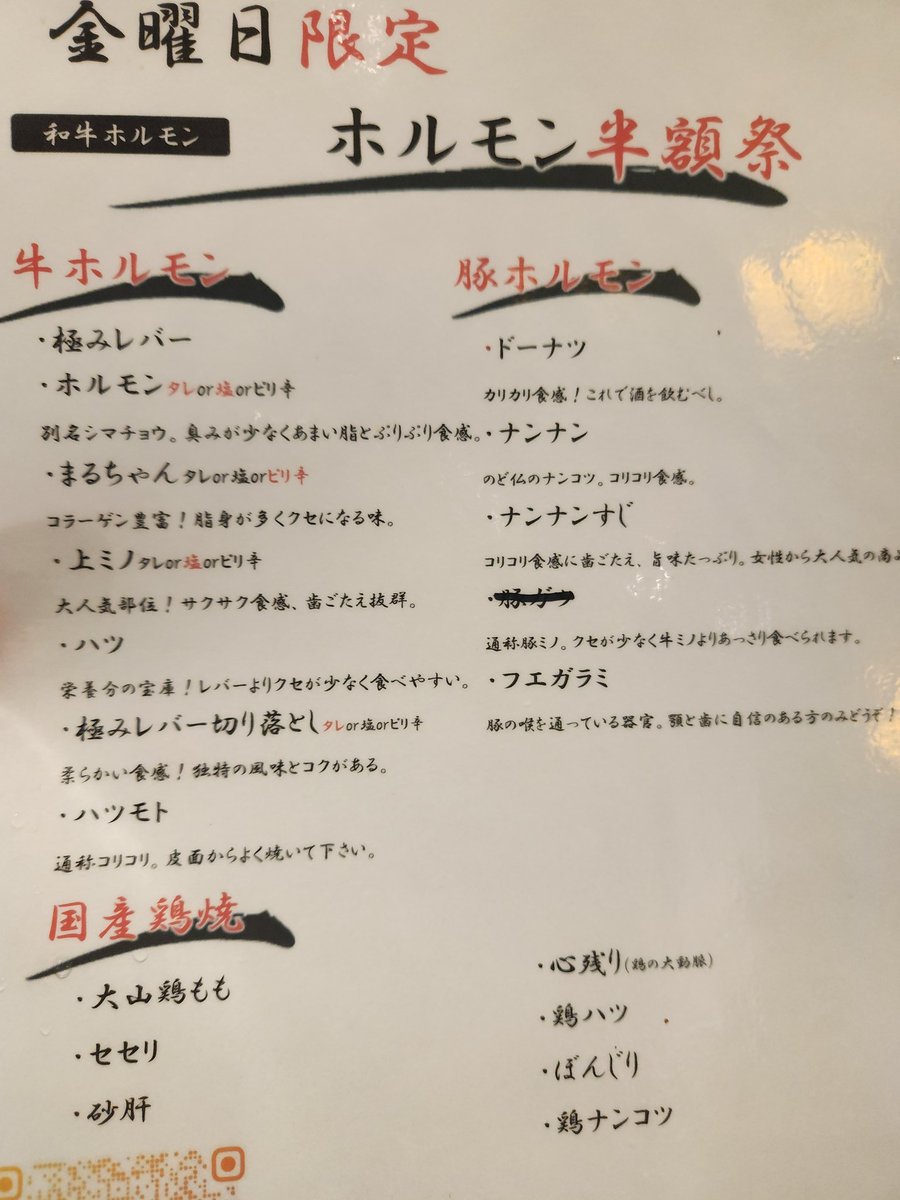 金曜日限定
和牛ホルモン
ホルモン半額祭
牛ホルモン
・極みレバー
・ホルモンタレor塩orピリ辛
別名シマチョウ。臭みが少なくあまい脂とぷりぷり食感。
・まるちゃんタレor塩orピリ辛
コラーゲン豊富！脂身が多くクセになる味。
・上ミノタレor塩orピリ辛
大人気部位！サクサク食感、歯ごたえ抜群。
・ハツ
栄養分の宝庫！レバーよりクセが少なく食べやすい。
・極みレバー切り落としタレor塩orピリ辛
柔らかい食感！独特の風味とコクがある。
・ハツモト
通称コリコリ。皮面からよく焼いて下さい。
豚ホルモン
・ドーナツ
カリカリ食感！これで酒を飲むべし。
・ナンナン
のど仏のナンコツ。コリコリ食感。
・ナンナンすじ
コリコリ食感に歯ごたえ、旨味たっぷり。女性から大人気の商品
・豚ガツ
通称豚ミノ。クセが少なく牛ミノよりあっさり食べられます。
・フエガラミ
豚の喉を通っている器官。顎と歯に自信のある方のみどうぞ！
国産鶏焼
・大山鶏もも
・セセリ
・砂肝
・心残り(鶏の大動脈)
・鶏ハツ
・ぼんじり
・鶏ナンコツ